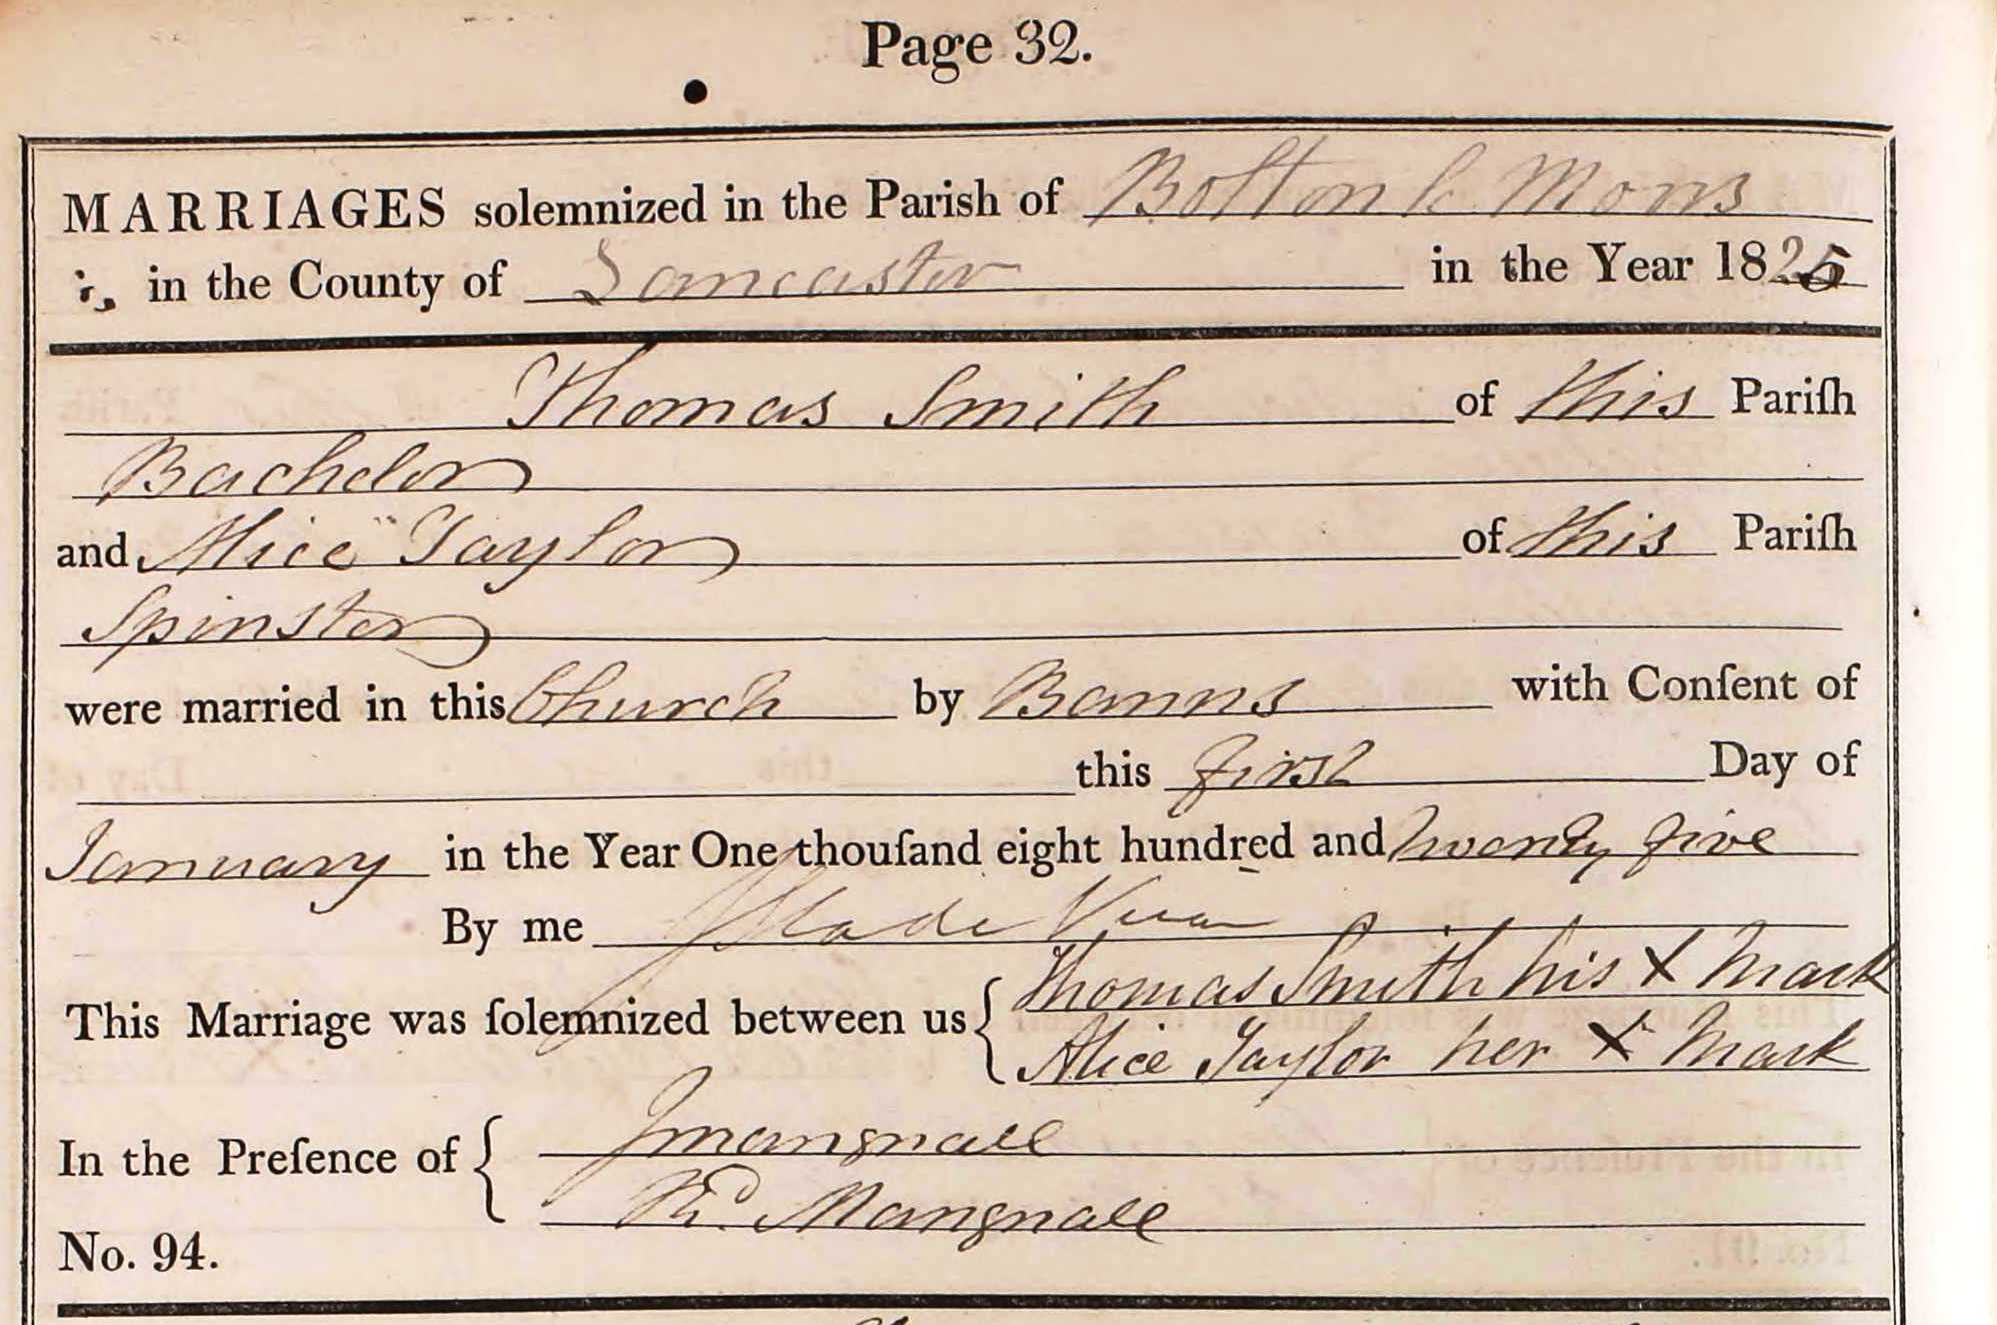 Page 32.
MARRIAGES solemnized in the Parish of Bolton le Moors
in the County of Lancaster in the Year 1825
Thomas Smith of this Pariſh
Bachelor
and Alice Taylor of this Pariſh
Spinster
were married in this Church by Banns with Conſent of
this first Day of
January in the Year One thouſand eight hundred and twenty five
By me Slade Vicar
This Marriage was ſolemnized between us { Thomas Smith his X Mark
Alice Taylor her X Mark
In the Preſence of { J Mangnall
Mangnall
No. 94.